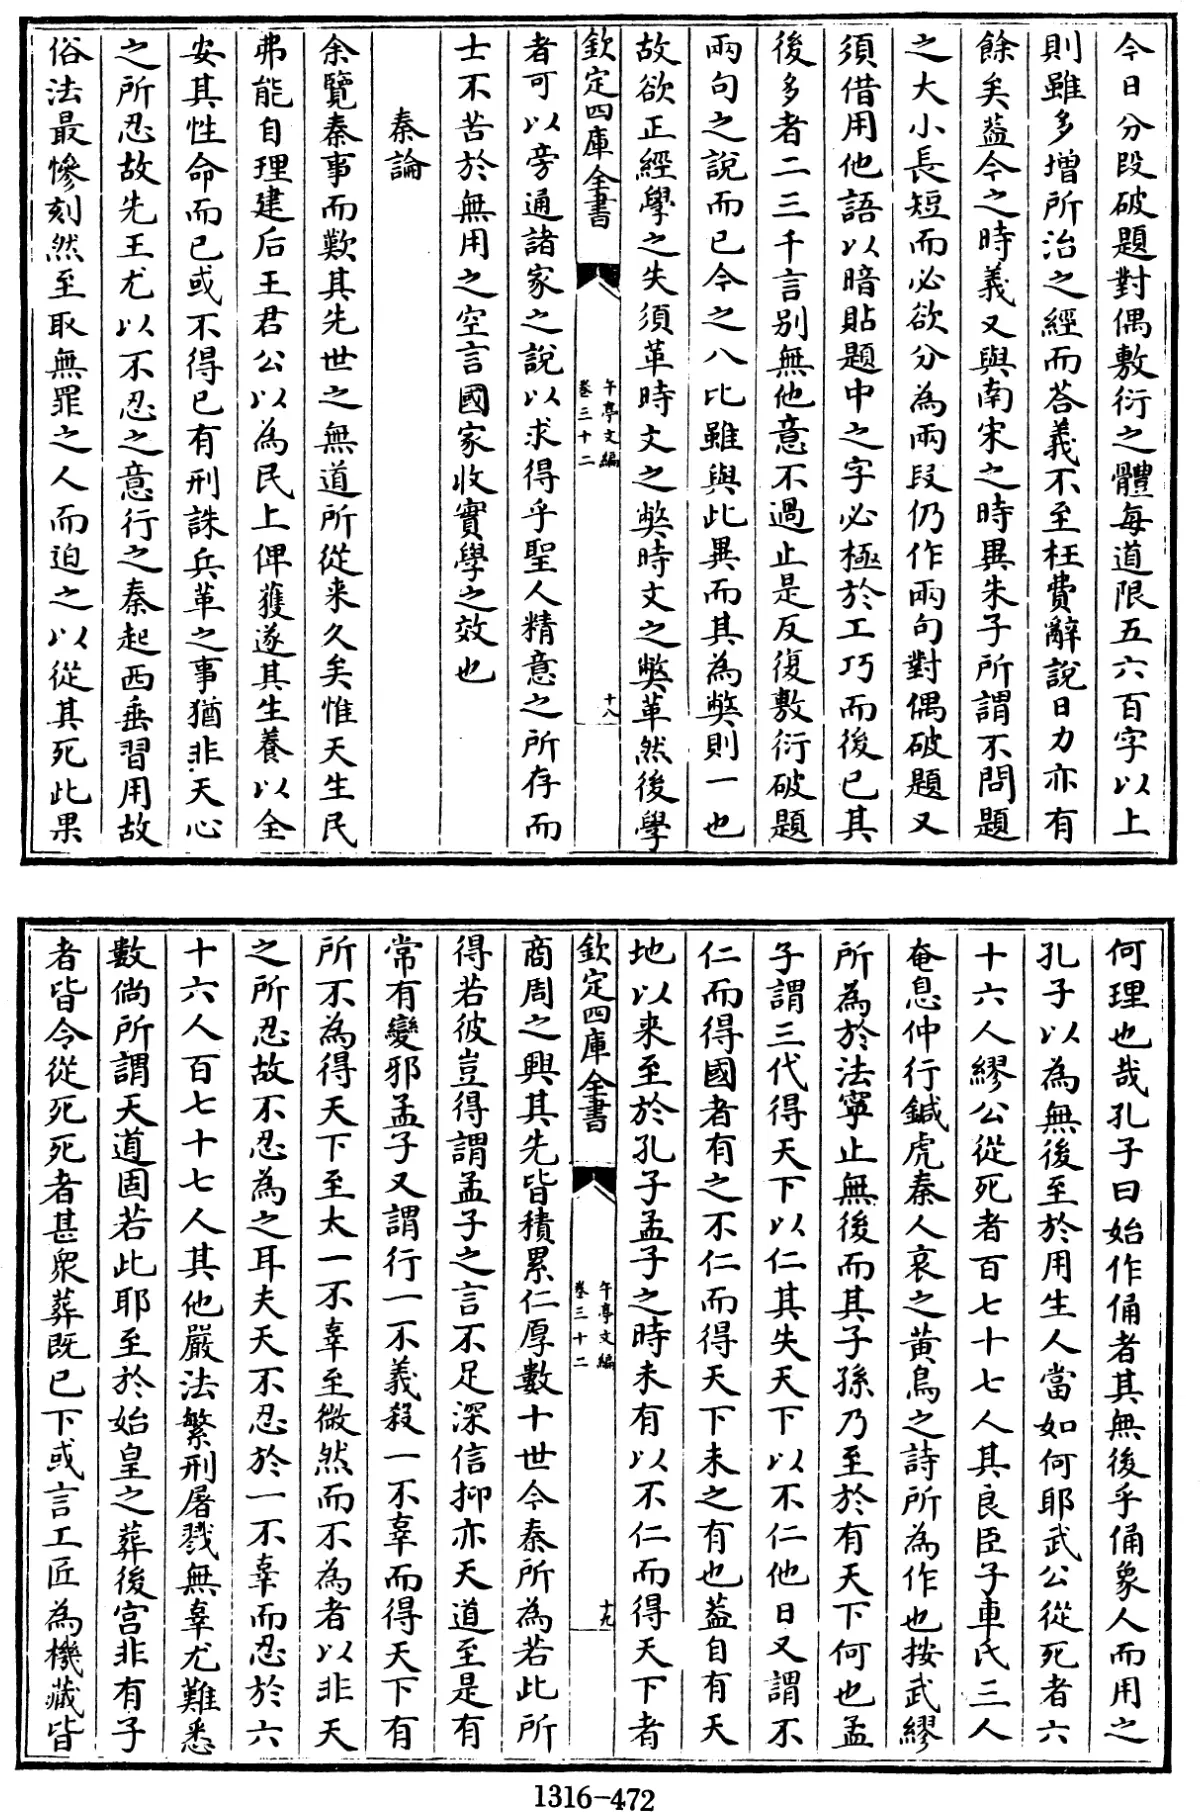 今日分段破題對偶敷衍之體每道限五六百字以上
則雖多增所治之經而答義不至枉費辭說日力亦有
餘矣葢今之時義又與南宋之時異朱子所謂不問題
之大小長短而必欲分為兩段仍作兩句對偶破題又
須借用他語以暗貼題中之字必極於工巧而後已其
後多者二三千言別無他意不過止是反復敷衍破題
兩句之說而已今之八比雖與此異而其為弊則一也
故欲正經學之失須革時文之弊時文之弊革然後學
欽定四庫全書
午亭文編
卷三十二
十八
者可以旁通諸家之說以求得乎聖人精意之所存而
士不苦於無用之空言國家收實學之效也
秦論
余覽秦事而歎其先世之無道所從来久矣惟天生民
弗能自理建后王君公以為民上俾獲遂其生養以全
安其性命而已或不得已有刑誅兵革之事猶非天心
之所忍故先王尤以不忍之意行之秦起西垂習用故
俗法最慘刻然至取無罪之人而迫之以從其死此果
何理也哉孔子曰始作俑者其無後乎俑象人而用之
孔子以為無後至於用生人當如何耶武公從死者六
十六人繆公從死者百七十七人其良臣子車氏三人
奄息仲行鍼虎秦人哀之黄鳥之詩所為作也按武繆
所為於法寧止無後而其子孫乃至於有天下何也孟
子謂三代得天下以仁其失天下以不仁他日又謂不
仁而得國者有之不仁而得天下未之有也葢自有天
地以来至於孔子孟子之時未有以不仁而得天下者
欽定四庫全書
午亭文編
卷三十二
十九
商周之興其先皆積累仁厚數十世今秦所為若此所
得若彼豈得謂孟子之言不足深信抑亦天道至是有
常有變邪孟子又謂行一不義殺一不辜而得天下有
所不為得天下至太一不辜至微然而不為者以非天
之所忍故不忍為之耳夫天不忍於一不辜而忍於六
十六人百七十七人其他嚴法繁刑屠戮無辜尤難悉
數倘所謂天道固若此耶至於始皇之葬後宮非有子
者皆令從死死者甚衆葬既已下或言工匠為機藏皆
1316-472